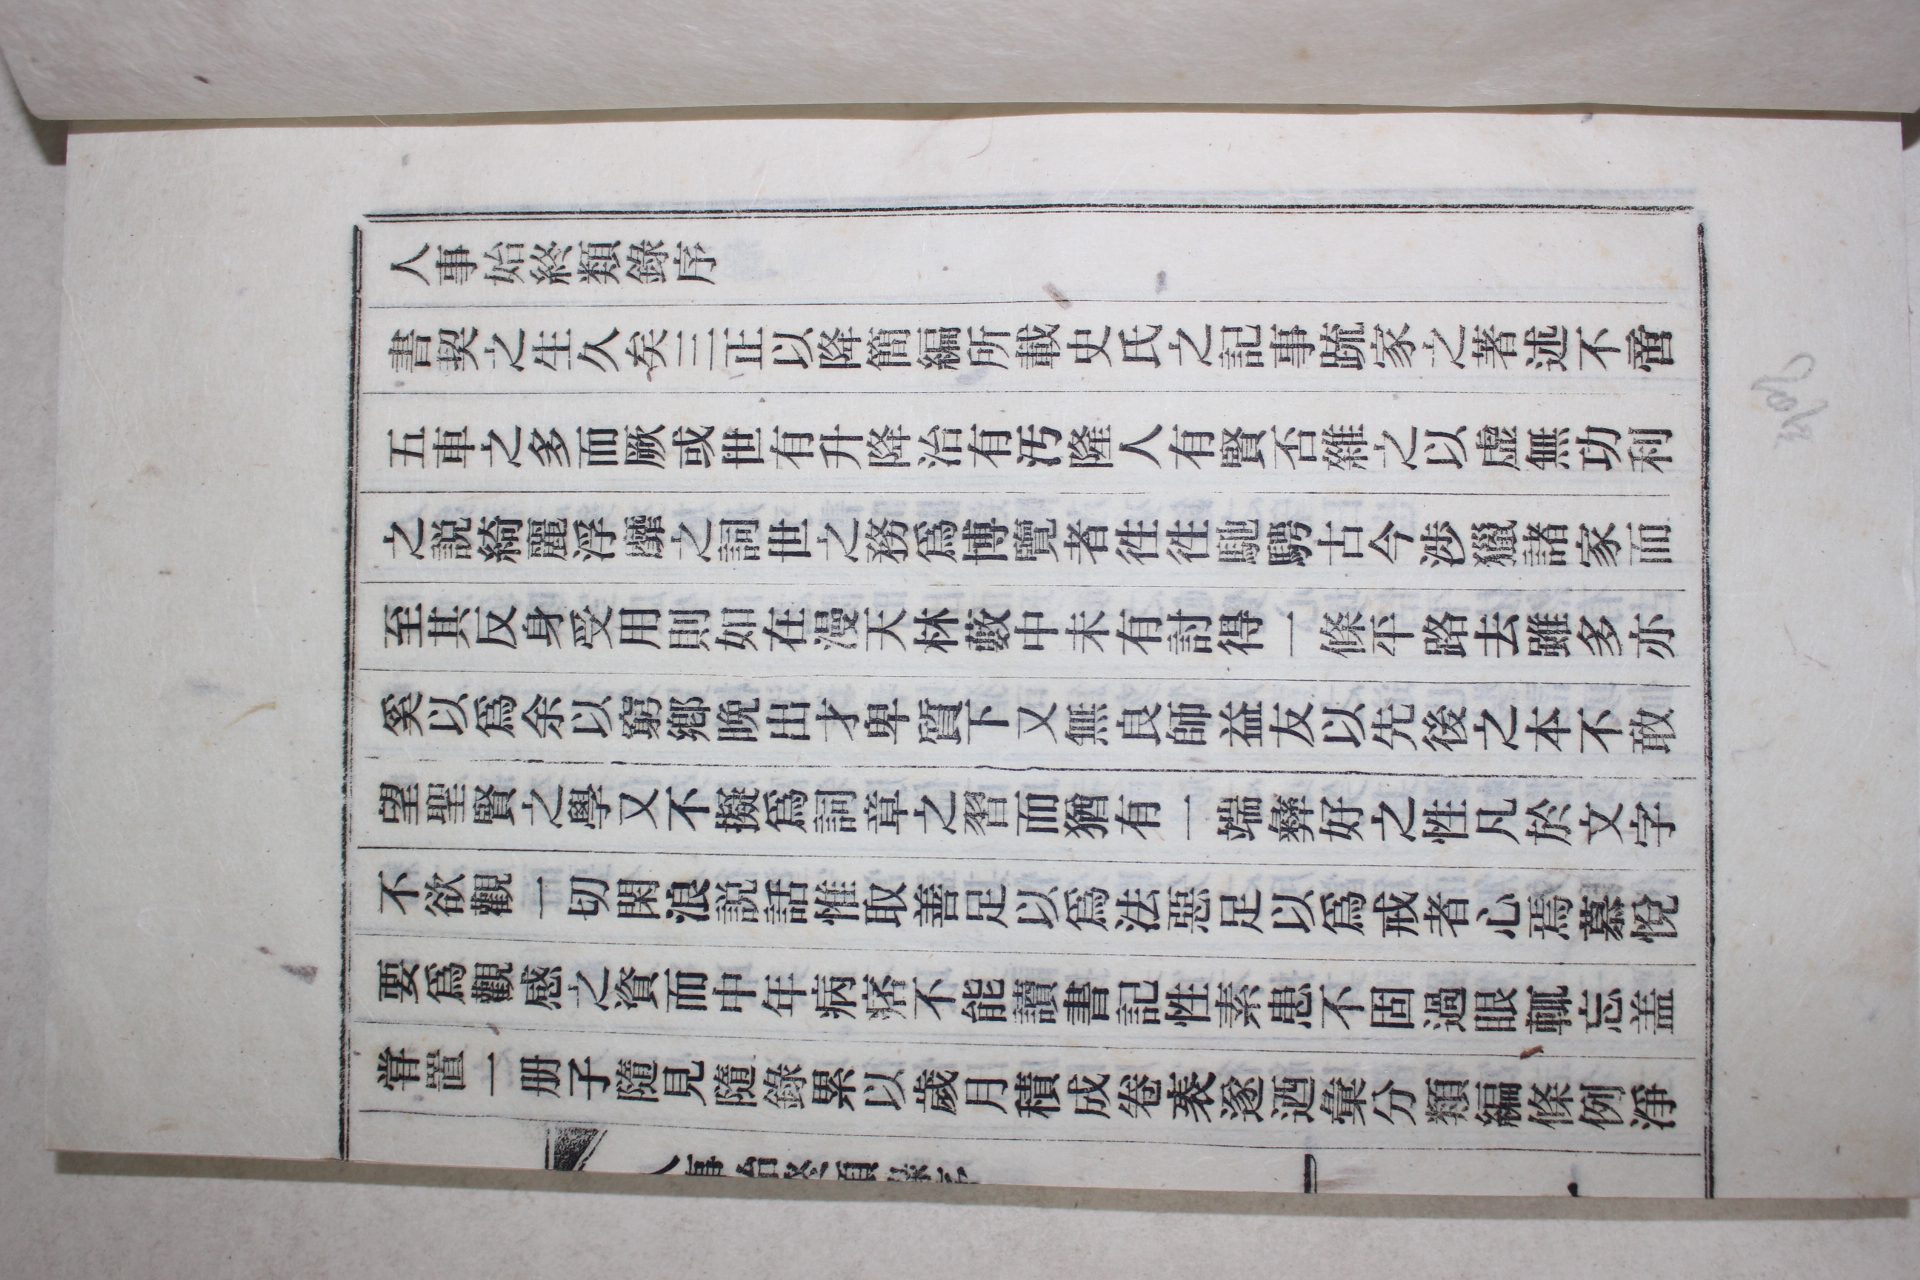 人事始終類錄序
書契之生久矣三正以降簡編所載史氏之記事䟽家之著述不啻
五車之多而厥或世有升降治有汚隆人有賢否雜之以虛無功利
之說綺麗浮靡之詞世之務爲博覽者徃徃馳騁古今涉獵諸家而
至其反身受用則如在漫天林藪中未有討得一條平路去雖多亦
奚以爲余以窮鄕晩出才卑質下又無良師益友以先後之本不敢
望聖賢之學又不擬爲詞章之習而猶有一端彝好之性凡於文字
不欲觀一切閑浪說話惟取善足以爲法惡足以爲戒者心焉慕悅
要爲觀感之資而中年病㾗不能讀書記性素患不固過眼輒忘盖
甞置一册子隨見隨錄累以歲月積成卷袠遂迺彙分類編條例淨
人事始終類錄序